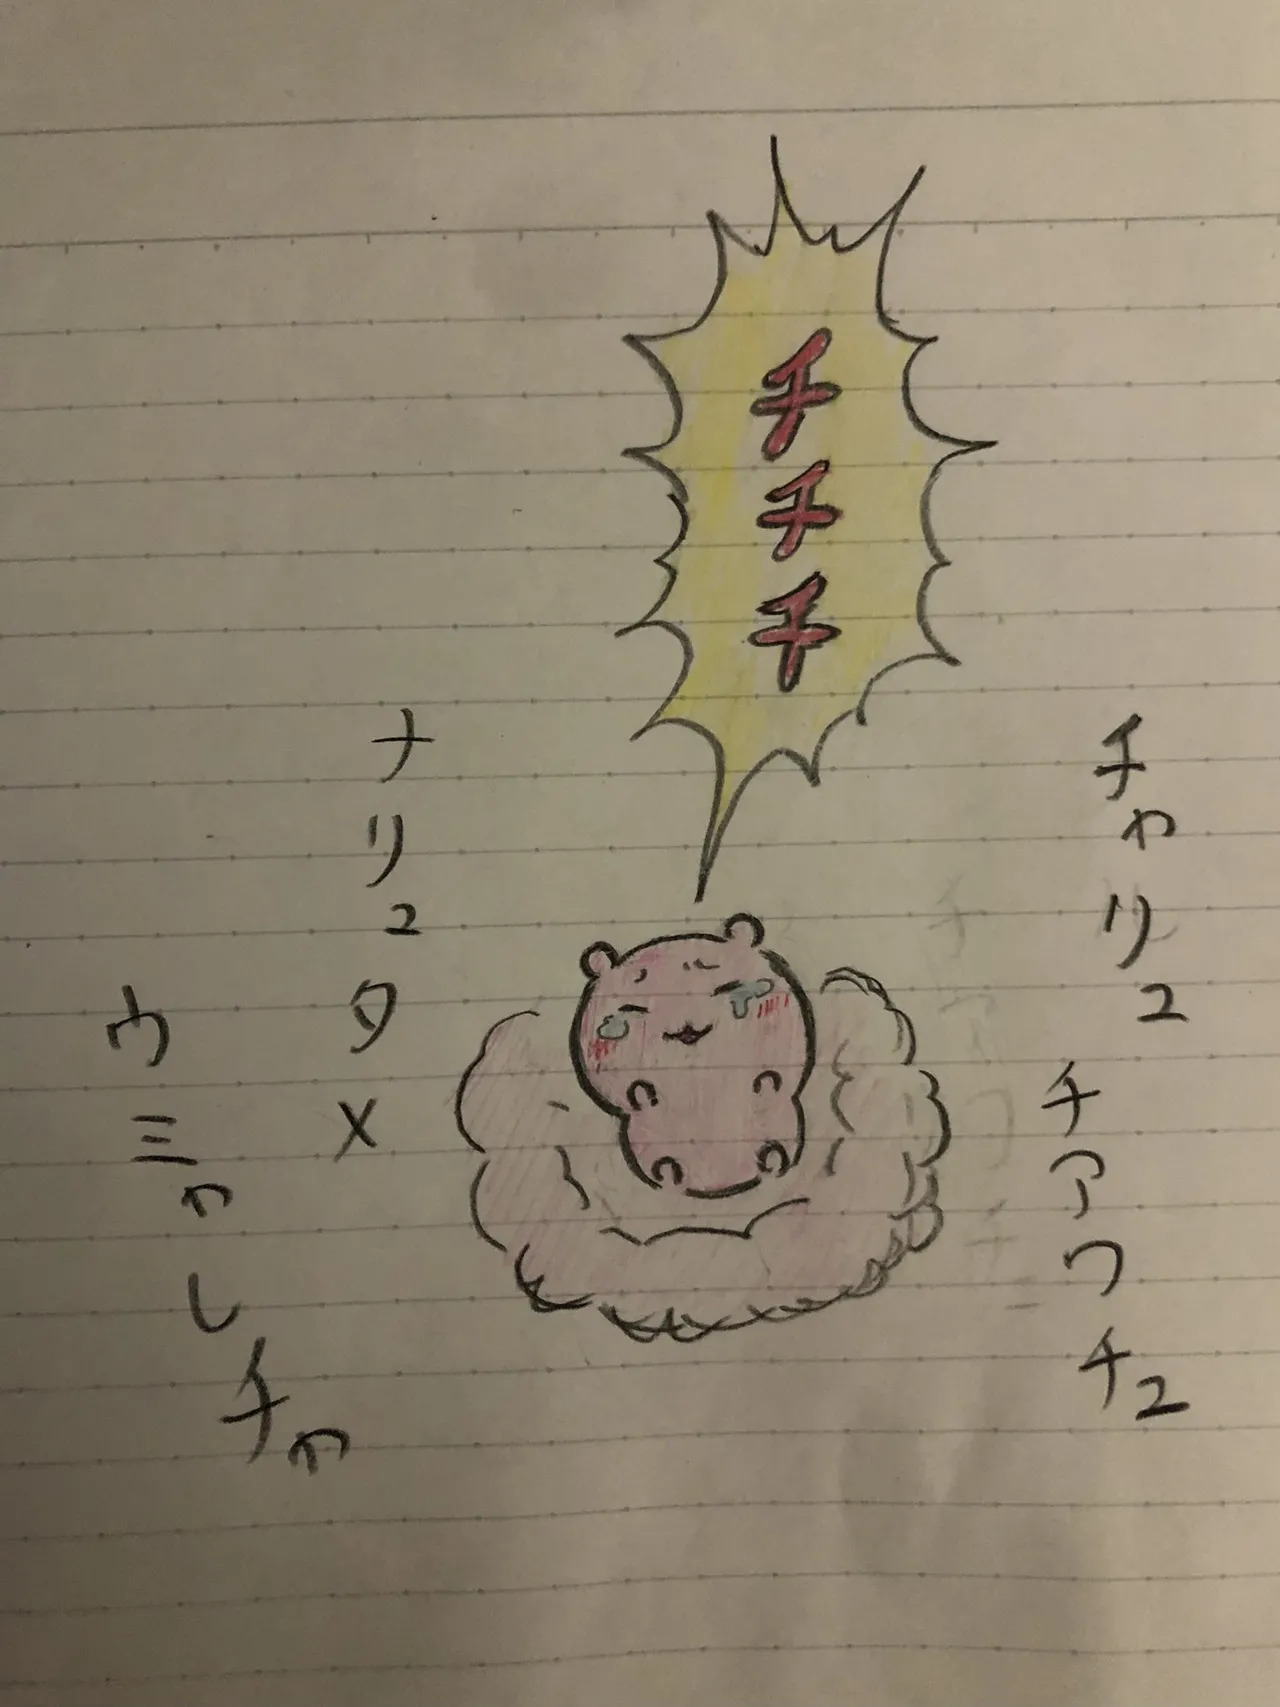 チチチ
チャリュ
チアワチュ
ナリュタメ
ウミャレチャ